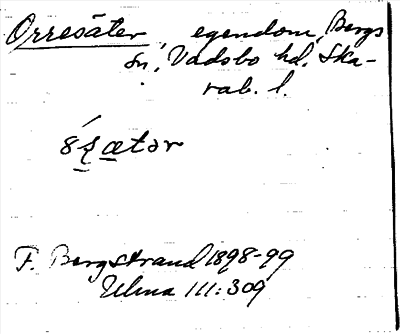 Orresäter, egendom, Bergs
sn, Vadsbo hd. Ska-
rab. l.
F. Bergstrand 1898-99
III: 309